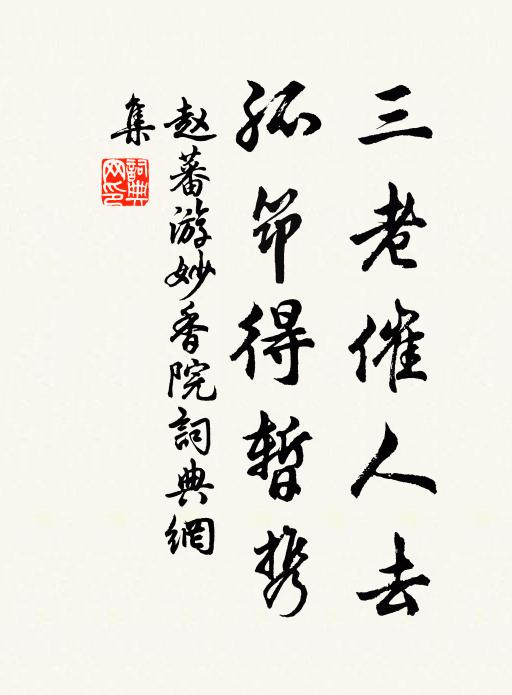 三老催人去
孤笻得暂携
赵蕃游妙香院詞典網
集
詞典
网印